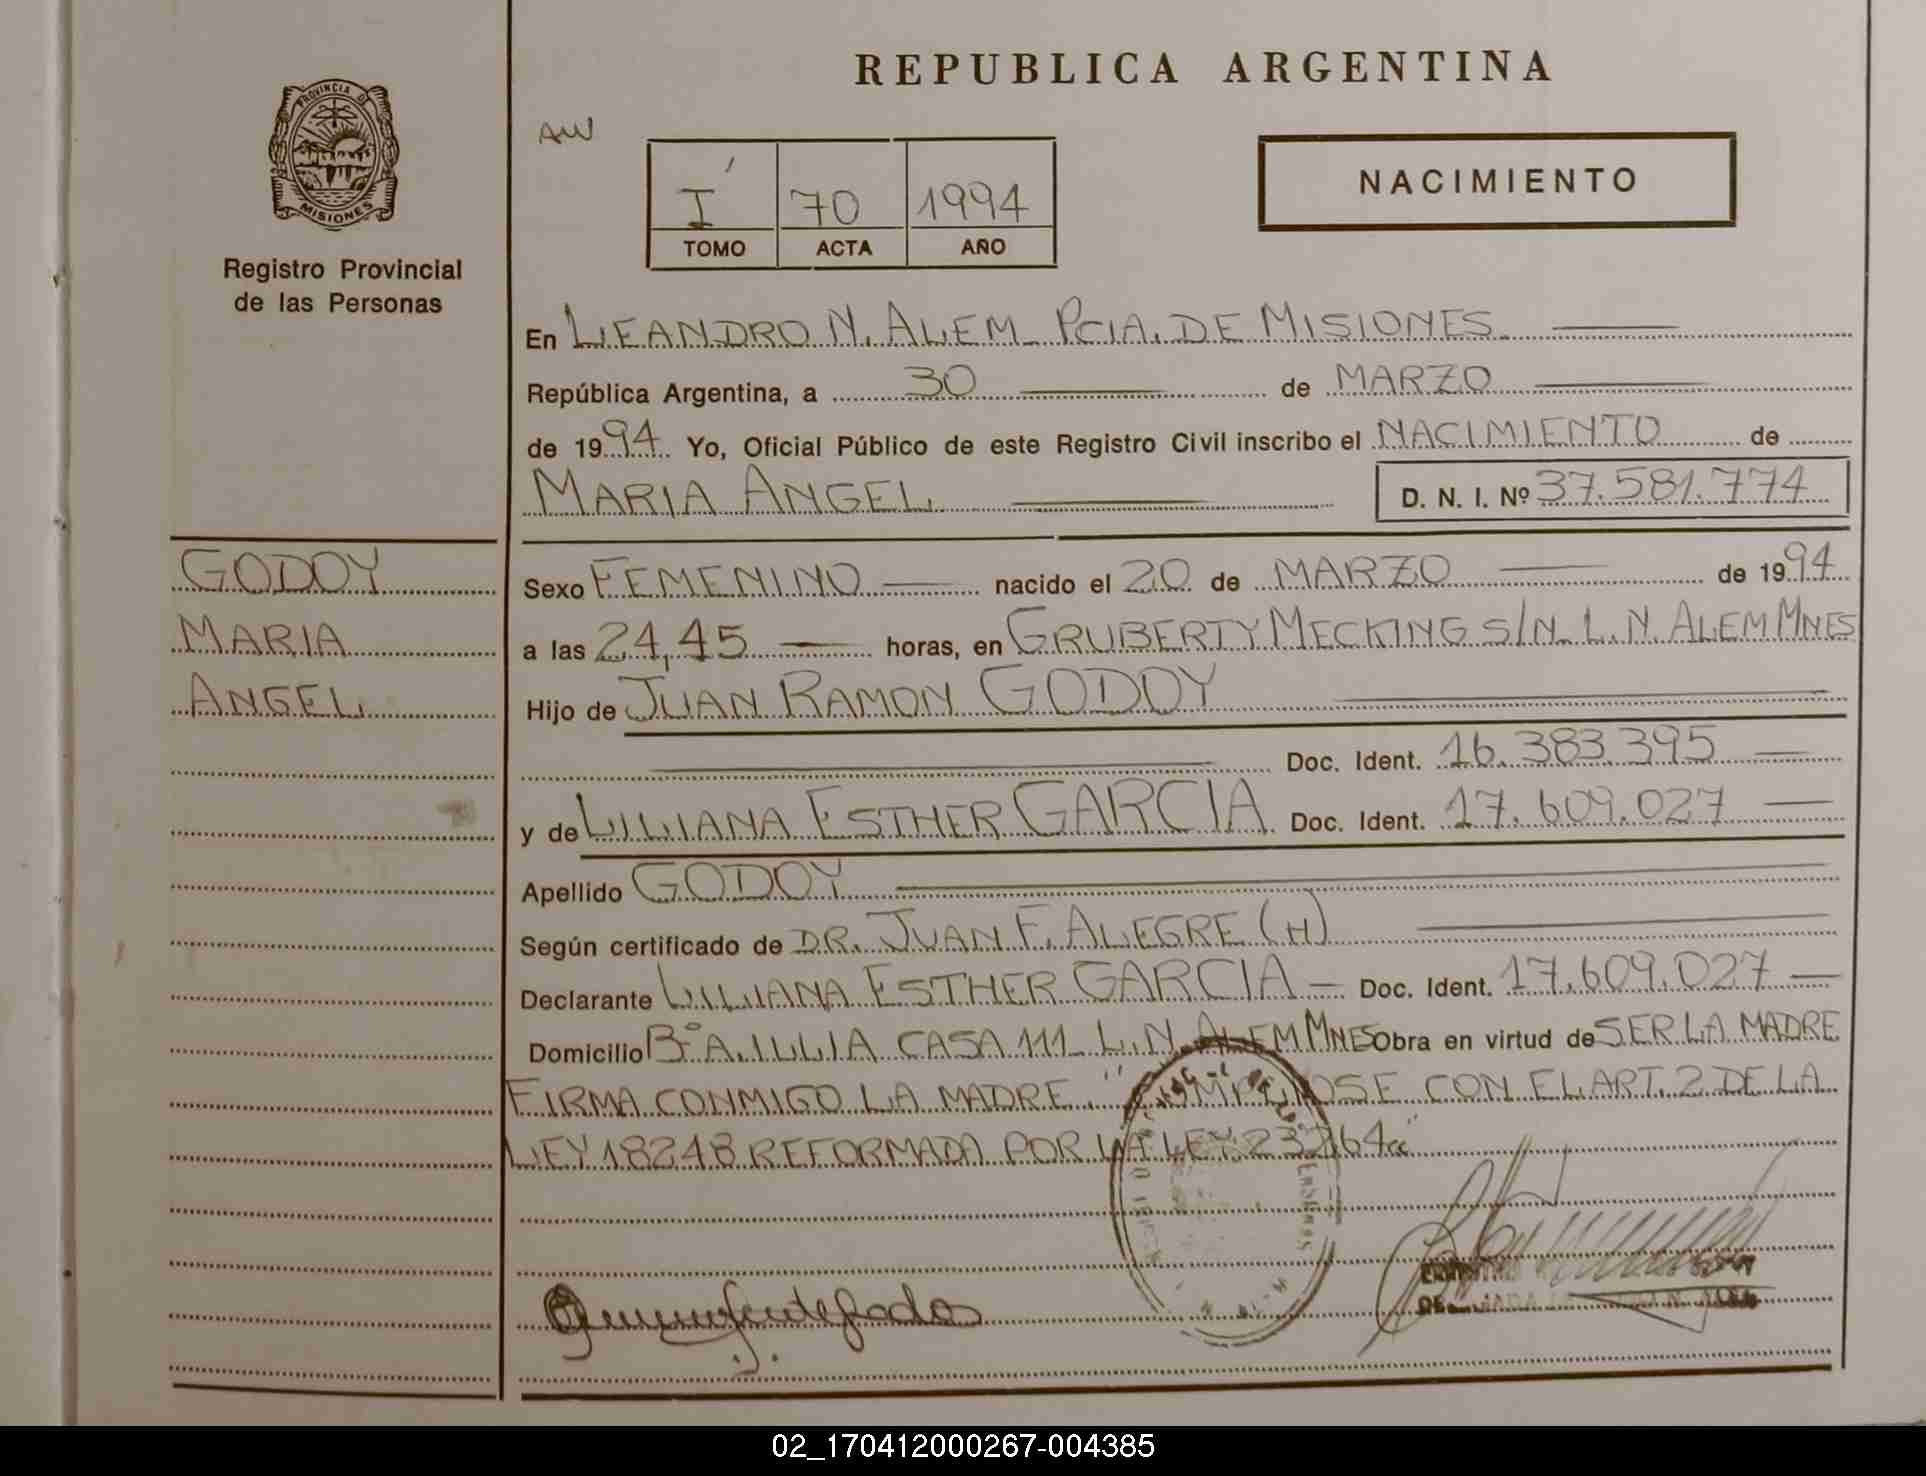 REPUBLICA ARGENTINA
PROVINCIA DE
MISIONES
Registro Provincial
de las Personas
AW
I 70 1994
TOMO ACTA AÑO
NACIMIENTO
En LEANDRO N. ALEM PCIA. DE MISIONES
República Argentina, a 30 de MARZO
de 1994 Yo, Oficial Público de este Registro Civil inscribo el NACIMIENTO de
MARIA ANGEL D. N. I. Nº 37.581.774
GODOY
MARIA
ANGEL
Sexo FEMENINO nacido el 20 de MARZO de 1994
a las 24,45 horas, en GRUBERTYMECKING S/N L.N. ALEM MNES
Hijo de JUAN RAMON GODOY
Doc. Ident. 16.383.395
y de LILIANA ESTHER GARCIA Doc. Ident. 17.609.027
Apellido GODOY
Según certificado de DR. JUAN F. ALEGRE (H)
Declarante LILIANA ESTHER GARCIA Doc. Ident. 17.609.027
Domicilio Bº A. ILLIA CASA 111 L.N. ALEM MNES Obra en virtud de SER LA MADRE
FIRMA CONMIGO LA MADRE. CON EL ART. 2 DE LA
LEY 18248 REFORMADA POR LA LEY 23264"
02_170412000267-004385